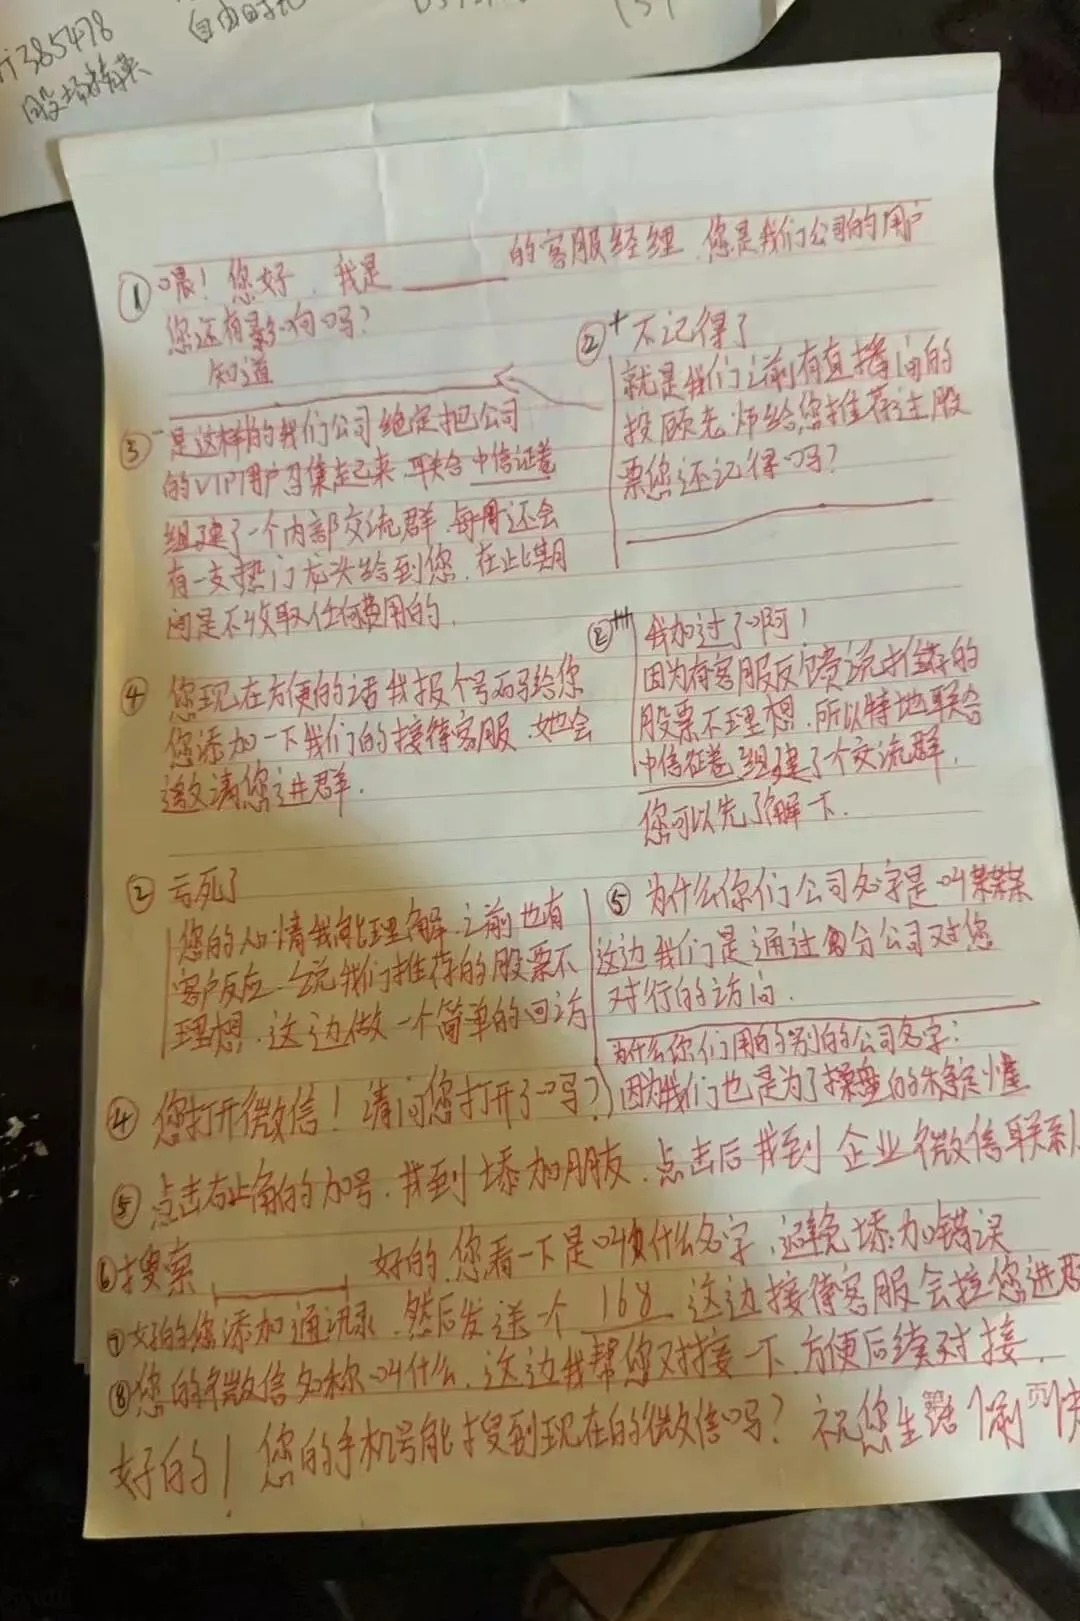 385478
股市精英
自由时光
① 喂！您好，我是____的客服经理，您是我们公司的用户
您还有影响吗？
知道
②+ 不记得了
就是我们之前有直播间的
投顾老师给您推荐过股
票您还记得吗？
③ 是这样的我们公司绝定把公司
的VIP用户召集起起来，联合中信证卷
组建了一个内部交流群，每周还会
有一支热门龙头给到您，在此期
间是不收取任何费用的，
②+++ 我加过了啊！
因为有客服反馈说推荐的
股票不理想，所以特地联合
中信征卷组建了个交流群，
您可以先了解一下．
④ 您现在方便的话我报个号码给您
您添加一下我们的接待客服，她会
邀请您进群．
② 亏死了
您的心情我能理解，之前也有
客户反应，说我们推荐的股票不
理想，这边做一个简单的回访
⑤ 为什么你们公司名字是叫某某某
这边我们是通过分公司对您
对行的访问．
为什么你们用的别的公司名字：
因为我们也是为了操盘的稳定懂
④ 您打开微信！请问您打开了吗？
⑤ 点击右上角的加号，找到添加朋友，点击后找到企业微信联系
⑥ 搜索____ 好的，您看一下是叫什么名字，避免添加错误
⑦ 好的您添加通讯录，然后发送一个 168 这边接待客服会拉您进群
⑧ 您的微信名称叫什么，这边我帮您对接一下，方便后续对接．
好的！您的手机号能搜到现在的微信吗？祝您生活愉快